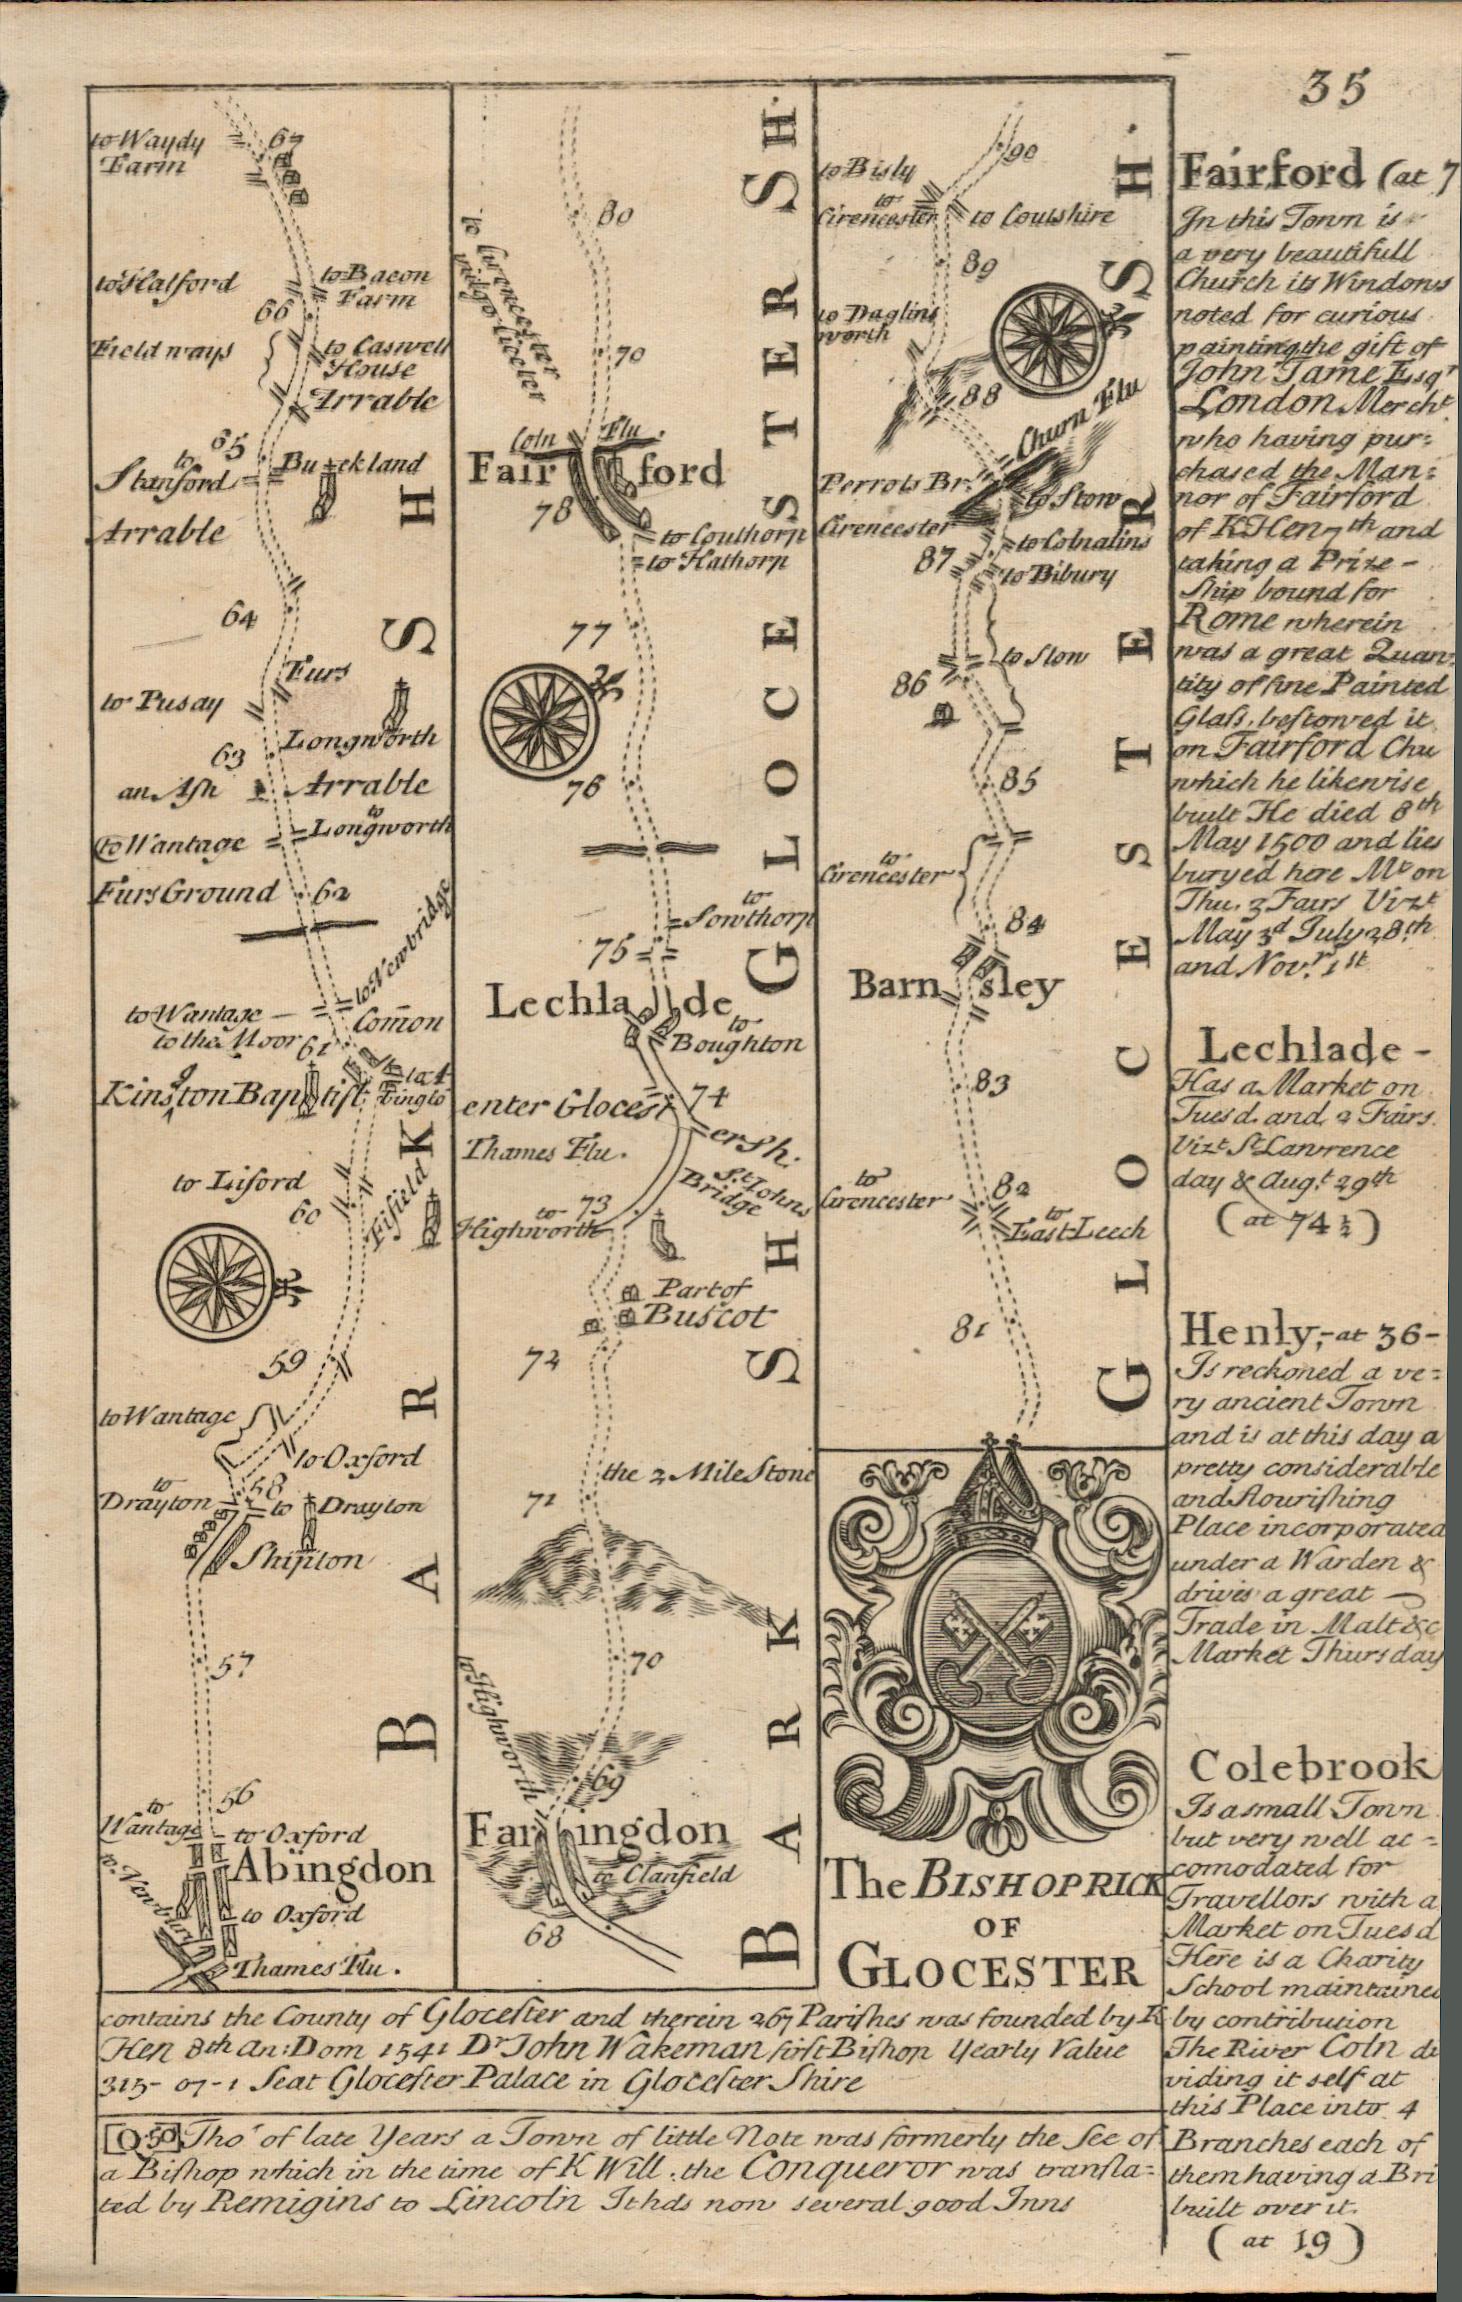 35
to Waydy
Farm
67
to Halford
to Bacon
Farm
66
Field ways
to Caswell
House
Arrable
65
to
Stanford
Buckland
Arrable
64
Furs
to Pusay
63
Longworth
an Ash
Arrable
to Wantage
to
Longworth
Furs Ground
62
to Newbridge
to Wantage
Com̄on
to the Moor
61
Kingston Baptist
to Liford
60
Fifield
59
to Wantage
to Oxford
58
to
Drayton
to Drayton
Shipton
57
56
to
Wantage
to Oxford
Abingdon
to Newbury
to Oxford
Thames Flu.
BARKSH
80
to Cirencester
70
Coln Flu.
Fairford
78
to Couthorp
to Hathorp
77
76
to
Sowthorp
75
Lechlade
to
Boughton
74
enter Glocestersh.
Thames Flu.
St Johns
Bridge
73
to
Highworth
Part of
Buscot
72
the 2 Mile Stone
71
70
to Highworth
69
Faringdon
to Clanfield
68
BARKSH
GLOCESTERSH.
90
to Bisly
to
Cirencester
to Coulshire
89
to Daglins
worth
88
Churn Flu
Perrots Br.
to Stow
Cirencester
to Colnalins
87
to Bibury
to Slow
86
85
to
Cirencester
84
Barnsley
83
82
to
Cirencester
to
East Leech
81
GLOCESTERSH.
The BISHOPRICK
OF
GLOCESTER
contains the County of Glocester and therein 267 Parishes was founded by K
Hen 8th An: Dom 1541 Dr John Wakeman first Bishop Yearly Value
315-07-1 Seat Glocester Palace in Glocester Shire
Q 50 Tho' of late Years a Town of little Note was formerly the See of
a Bishop which in the time of K Will. the Conqueror was transla=
ted by Remigins to Lincoln It hds now several good Inns
Fairford (at 7
In this Town is
a very beautifull
Church its Windows
noted for curious
painting the gift of
John Tame Esqr
London Mercht
who having pur:
chased the Man:
nor of Fairford
of K Hen 7th and
taking a Prize-
Ship bound for
Rome wherein
was a great Quan:
tity of fine Painted
Glass, bestowed it
on Fairford Chu
which he likewise
built He died 8th
May 1500 and lies
buryed here Mt on
Thu. 3 Fairs Vizt
May 3d July 28th
and Novr 1st
Lechlade-
Has a Market on
Tuesd. and 2 Fairs
Vizt St Lawrence
day & Augt 29th
(at 74½)
Henly;-at 36-
Is reckoned a ve=
ry ancient Town
and is at this day a
pretty considerable
and flourishing
Place incorporated
under a Warden &
drives a great
Trade in Malt &c
Market Thursday
Colebrook
Is a small Town
but very well ac-
comodated for
Travellors with a
Market on Tuesd
Here is a Charity
School maintained
by contribution
The River Coln di
viding it self at
this Place into 4
Branches each of
them having a Bri
built over it.
(at 19)